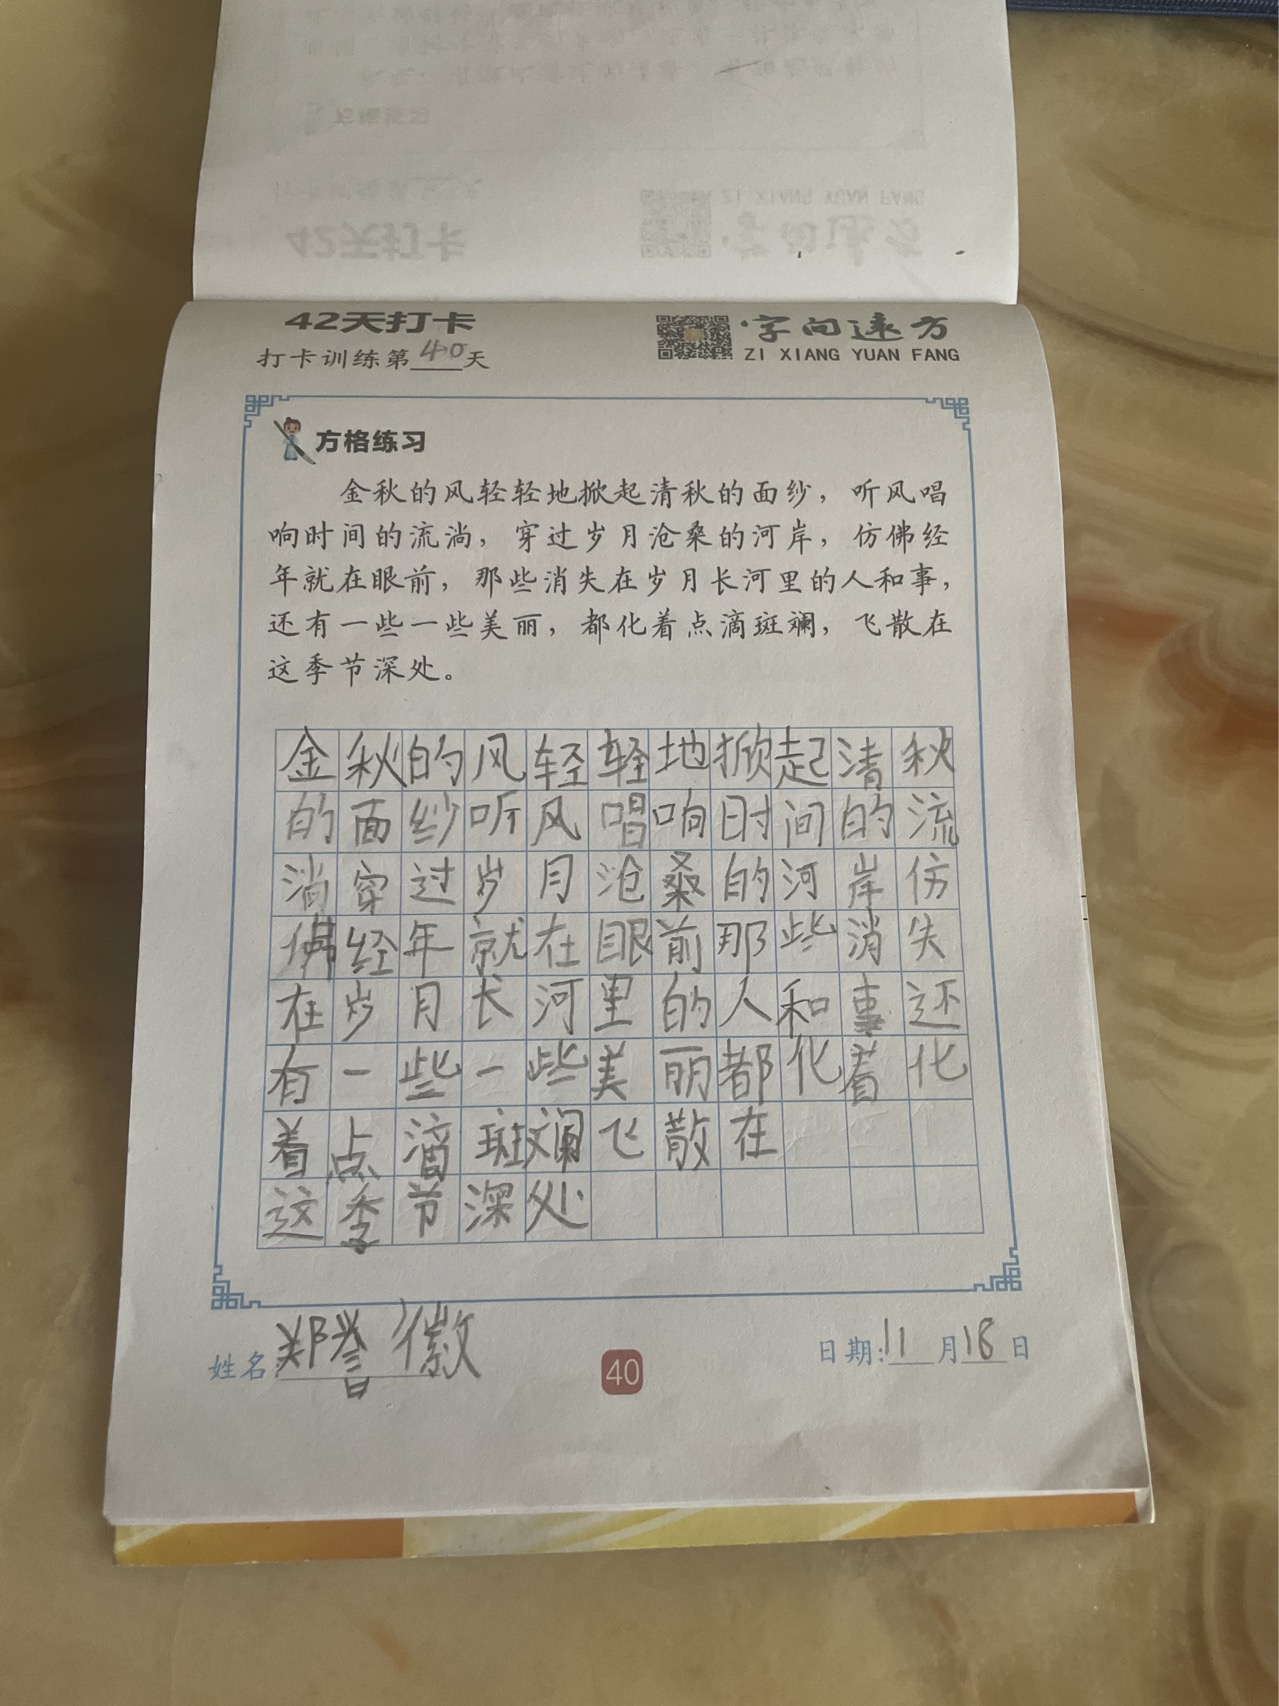 42天打卡
字向远方
打卡训练第40天
ZI XIANG YUAN FANG
方格练习
金秋的风轻轻地掀起清秋的面纱，听风唱
响时间的流淌，穿过岁月沧桑的河岸，仿佛经
年就在眼前，那些消失在岁月长河里的人和事，
还有一些一些美丽，都化着点滴斑斓，飞散在
这季节深处。
金秋的风轻轻地掀起清秋
的面纱听风唱响时间的流
淌穿过岁月沧桑的河岸仿
佛经年就在眼前那些消失
在岁月长河里的人和事还
有一些一些美丽都化着化
着点滴斑斓飞散在
这季节深处
姓名 郑誉徽
40
日期:11月18日